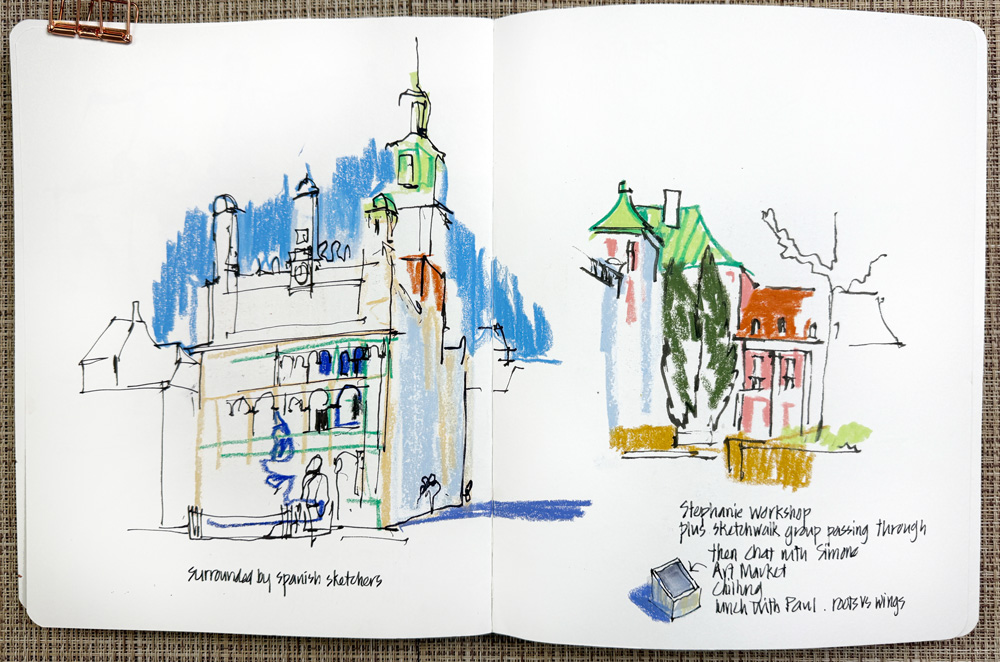 Surrounded by Spanish sketchers
Stephanie Workshop
plus sketchwalk group passing through
then chat with Simone
Art Market
Chilling
lunch with Paul . roots vs wings